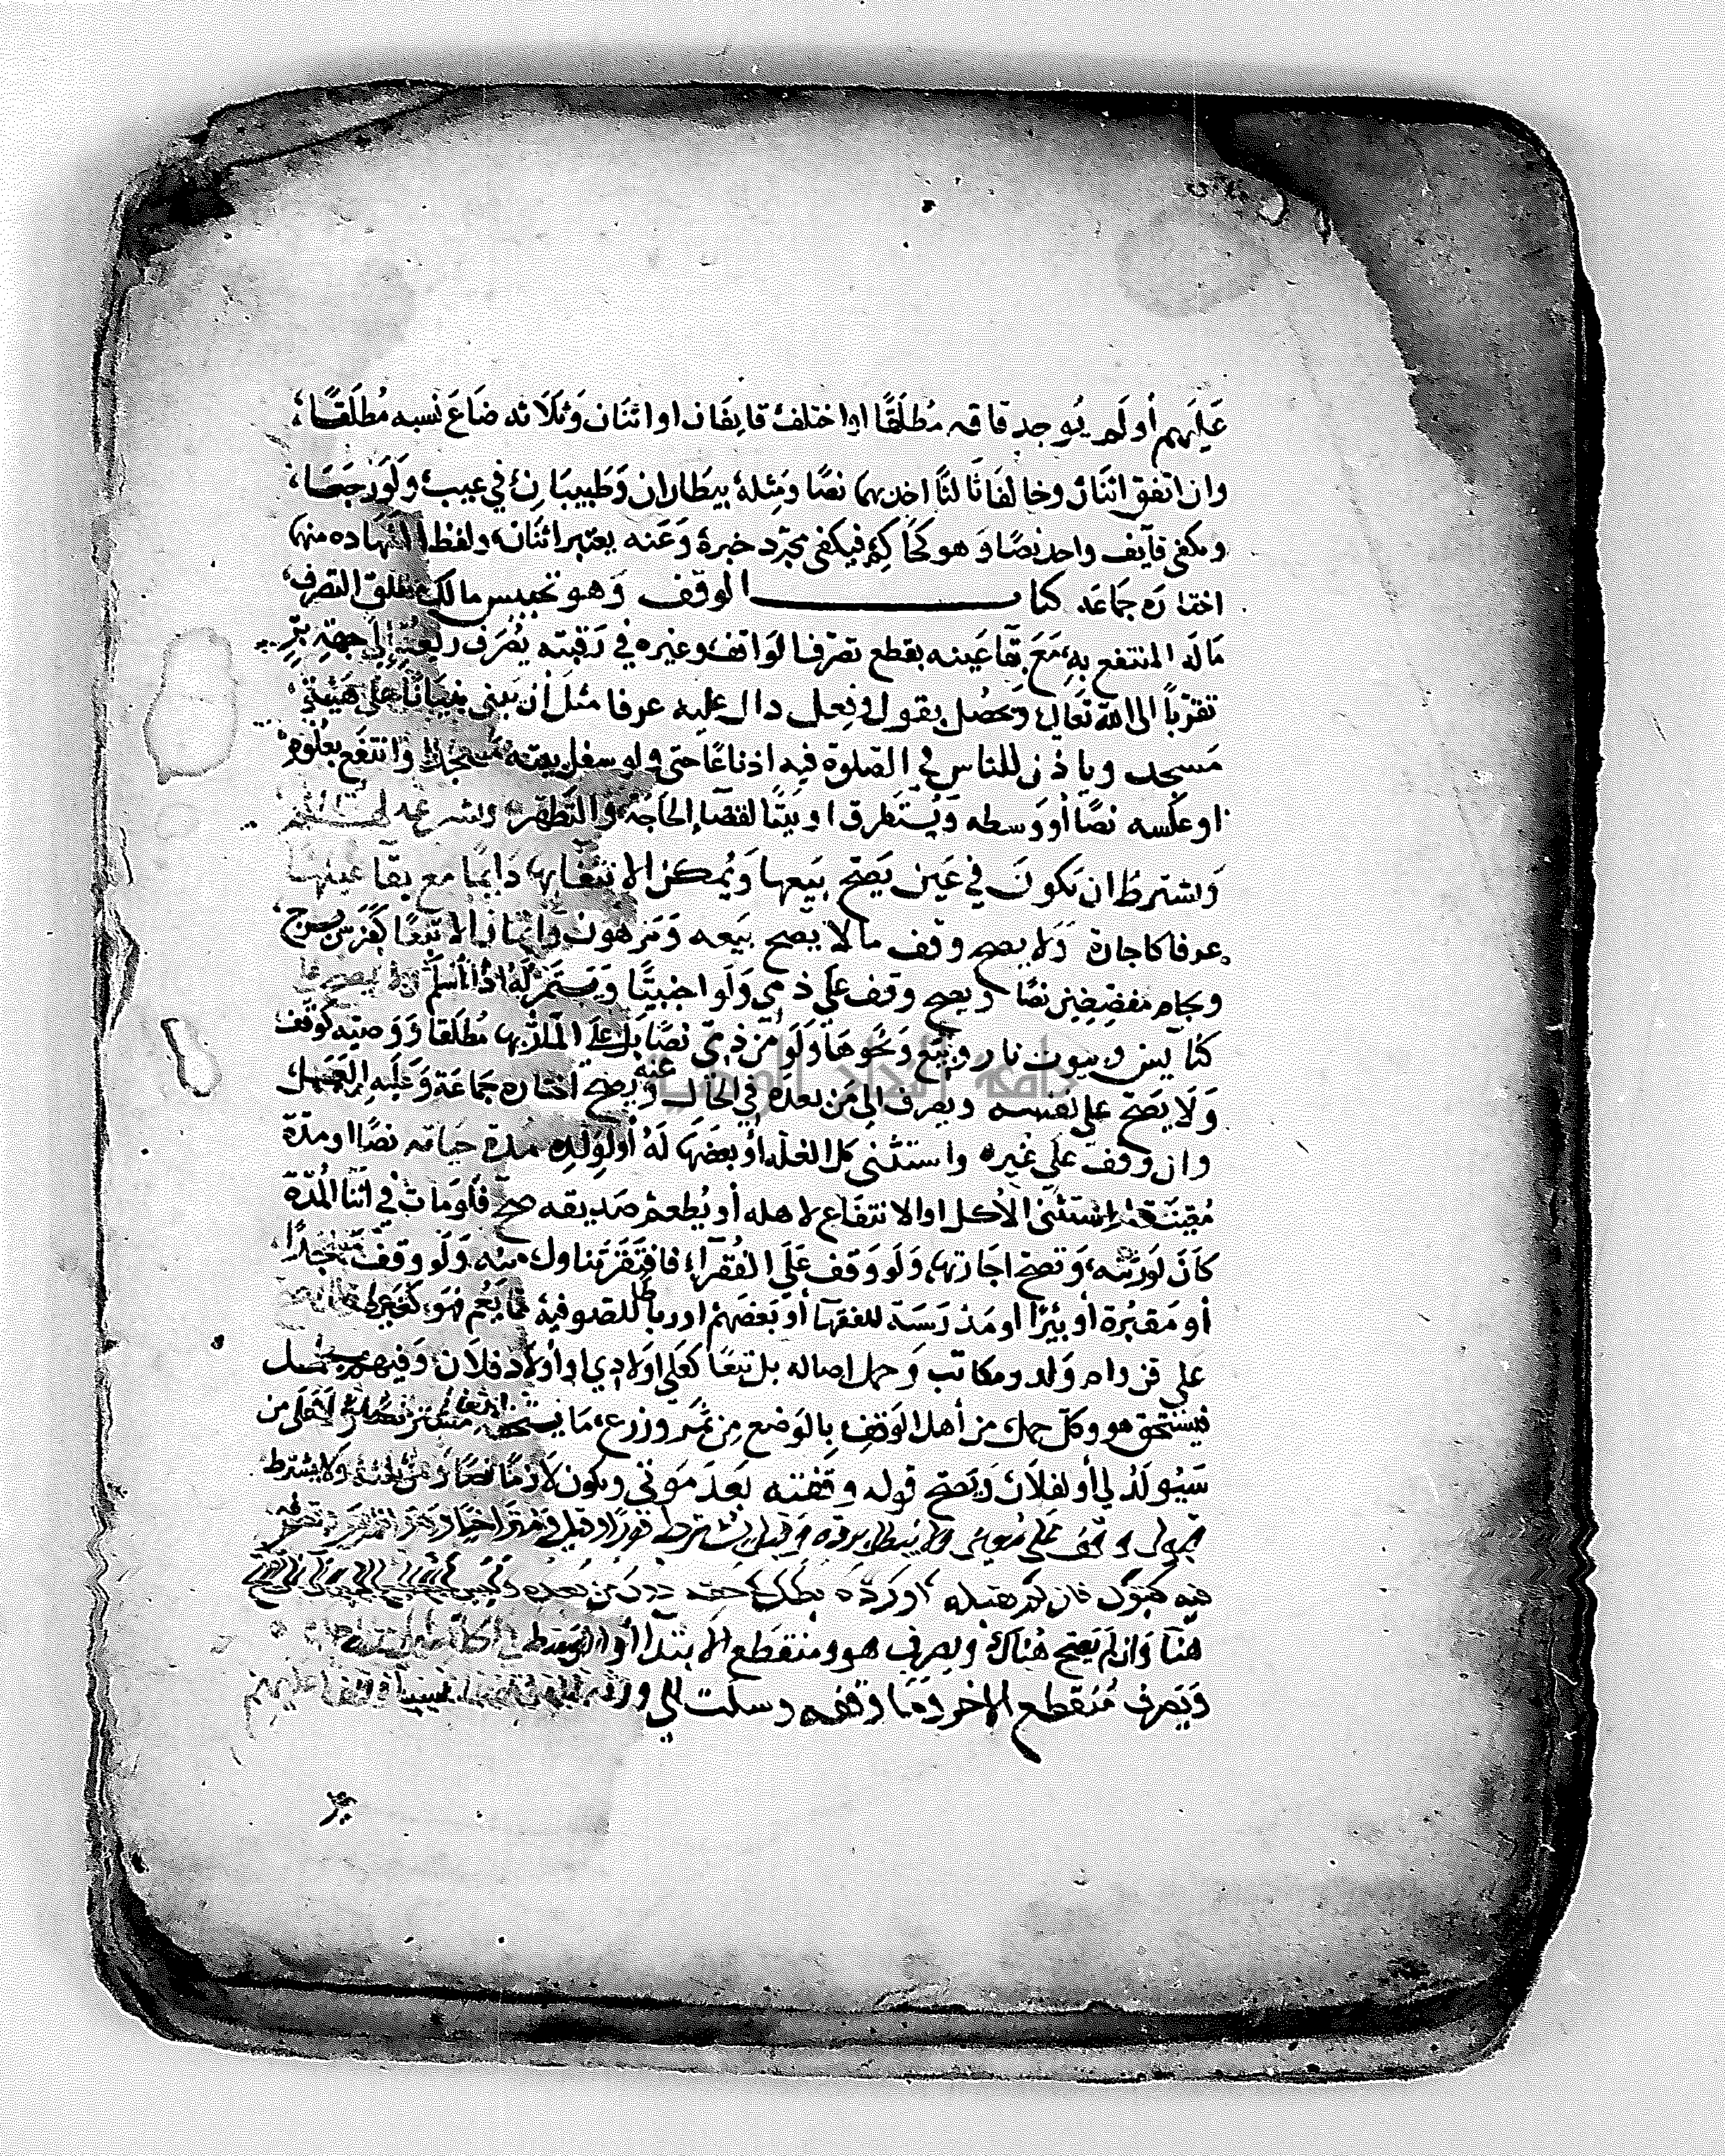 عَلَيهم أو لَم يُوجد قافه مُطلَقًا او اختلف قايفان او اثنان وَثَلاثه ضَاعَ نسبه مُطلَقًا
وان اتفق اثنان وخالفا ثالثًا اخذ بهما نصًا ومثله بيطاران وَطَبيبَان في عيب وَلَو رجَعَا
ويكفى قايف واحد نصًا وَهو كحاكم فيكفى مجرّد خبره وَعَنه يعتبر اثنان ولفظ الشهاده منهما
اختاره جماعَه كتاب الوقف وَهو تحبيس مالك مطلق التصرف
مَاله المنتفع به مَعَ بقا عَينه بقطع تصرّف الوَاقف وغيره في رَقبته يُصرَف ريعه إلى جهة برّ
تقرّباً الى الله تعَالى وَيحصُل بقول وفِعل دال عليه عرفا مثل أن يبني بنيانًا على هَيئة
مَسجد وياذن للناس في الصّلوة فيه اذنا عامًا حتى ولو سفل بيته مسجدًا وانتفع بعلوه
او عكسه نصًا أو وَسطه وَيُستَطرق او بيتًا لقضَاء الحَاجَة وَالتّطهّر ويشرعه لهم
وَيشترط ان يكونَ في عَين يَصحّ بَيعها وَيُمكن الانتفَاع بها دَايمًا مع بقَا عينها
عرفا كاجارة وَلا يصح وقف مالا يصح بَيعه وَمَرهون وَاثمان الا تبَعًا كفرَس بسرج
ولجام مفضضين نصًا وَيصح وقف على ذمي وَلَو اجنبيًّا وَيَستَمر لَه اذا اسلم لا يصح على
كنايس وبيوت نار وبيَع وَنحوهَا وَلَو مِن ذميّ نصًا بَل على المارّ بها مُطلَقا وَوَصيّه كوَقف
وَلَا يَصحّ على نفسه ويصرف الى مَن بعده في الحَال وَعَنه يصح اختاره جماعَة وَعَلَيه العَمل
وان وقف على غيره واستثنى كل الغلّه أو بعضَها لَهُ أو لوَلده مدة حيَاته نصًا او مدّة
مُعيّنَة او استثنى الاكل او الانتفَاع لاهله أو يُطعم صَديقه صحّ فلَو مَاتَ في اثنا المُدّة
كانَ لورثته وَتصحّ اجَارتها وَلَو وَقف عَلَى الفُقرَاء فافتَقَرَ تناول منه وَلَو وقف مسجدًا
أو مَقبُرة أو بئرًا او مَدرَسَة للفقهَا أو بَعضَهُم او رباطًا للصّوفيه مما يَعُم فهوَ كغَيره لا يَصح
على قن وام وَلد ومكاتب وَحمل اصاله بل تبعًا كعَلى اوَلادي او أولَاد فلَان وَفيهم حمل
فيستحق هو وكل حمل من أهل الوَقف بالوَضع مِن ثمَر وزرع مَا يستحقه مشتر نصًا لا عَلى من
سَيُولَدُ لي أو لفلَان وَيَصحّ قوله وقفته بَعدَ مَوتي ويكون لَازمًا نصًا من ثلثه وَلا يشترط
قبول وقف على مُعين ولا يبطل برده وَقيل يشترط
فيه قبول فان لم يقبله أو رَدّه بطل في حقه دون من بَعده
هنا وَان لَم يَصح هُنَاك ويصرف هو ومنقَطع الابتدا او الوسط
وَيَصرف مُنقطع الاخر وَمَا وقفه وسكت الى ورثته